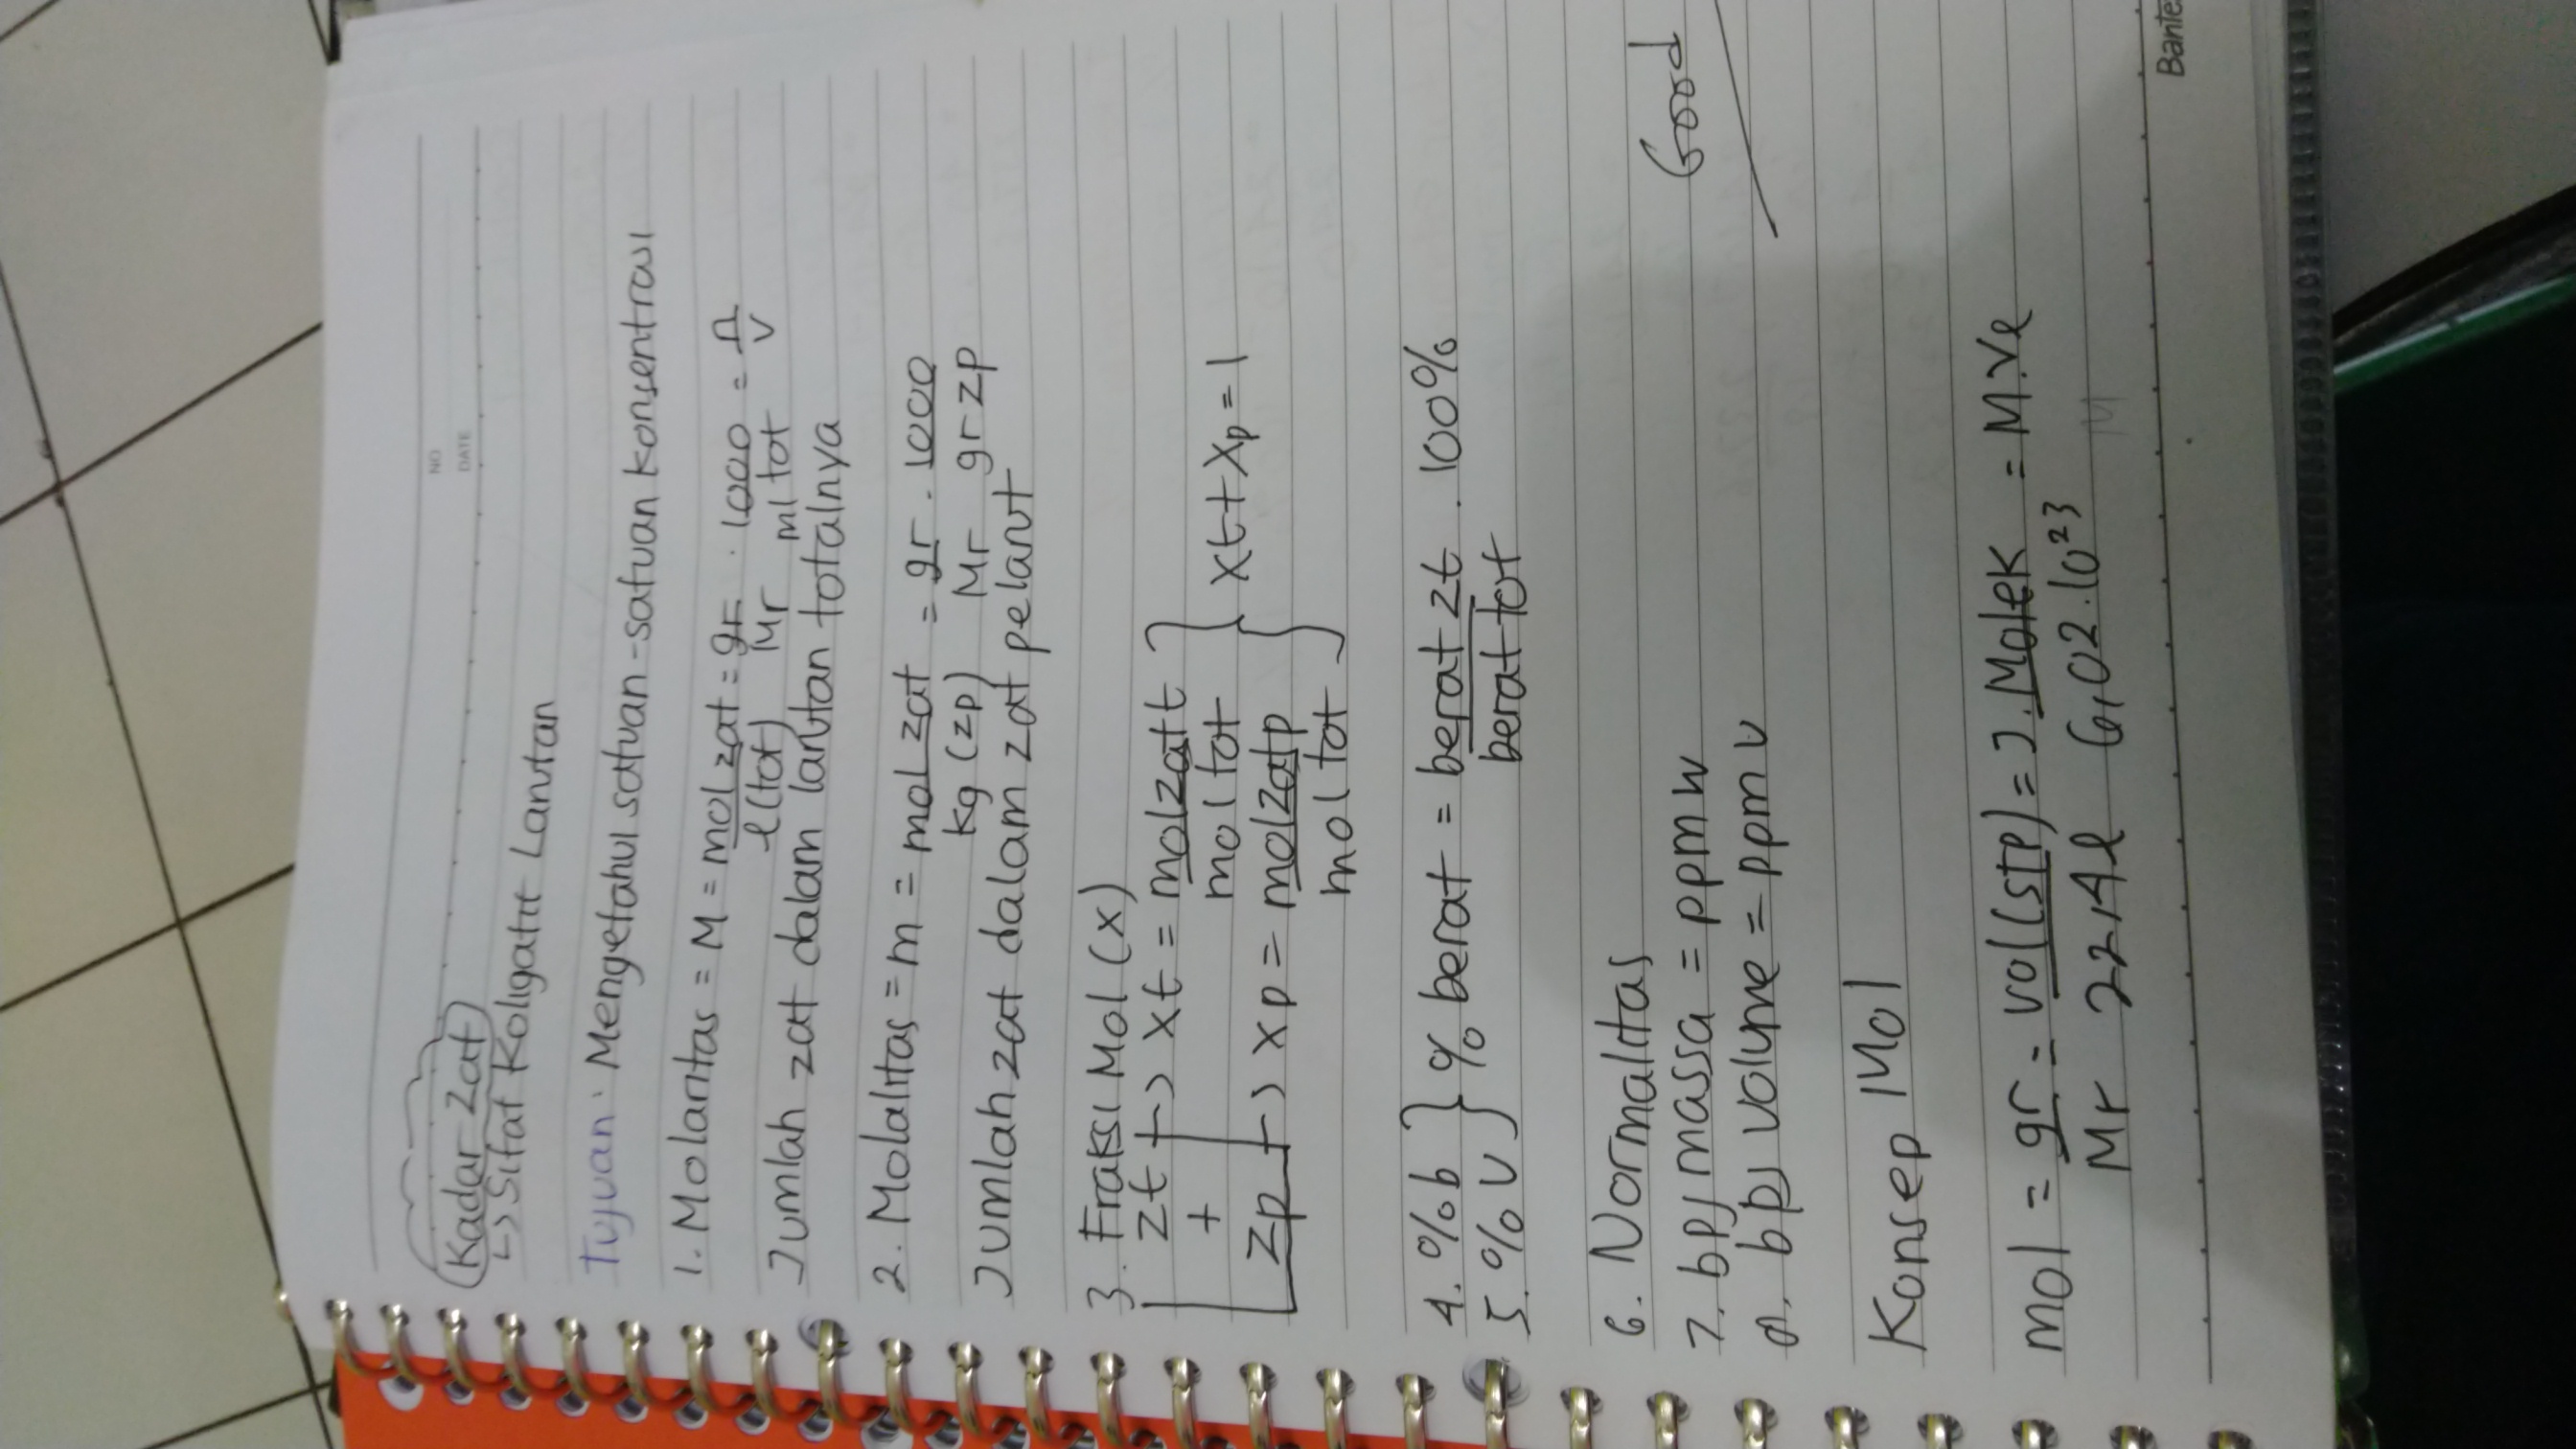 NO
DATE
Kadar Zat
↳ Sifat Koligatif Larutan
Tujuan : Mengetahui satuan-satuan konsentrasi
1. Molaritas = M = mol zat = gr . 1000 = n
l(tot) Mr ml tot V
Jumlah zat dalam larutan totalnya
2. Molalitas = m = mol zat = gr . 1000
kg (zp) Mr gr zp
Jumlah zat dalam zat pelarut
3. Fraksi Mol (x)
zt → xt = mol zat t
+ mol tot
xt + xp = 1
zp → xp = mol zat p
mol tot
4. %b } % berat = berat zt . 100%
5. %v berat tot
6. Normalitas
7. bpj massa = ppm w
8. bpj volume = ppm v
Good
Konsep Mol
mol = gr = vol(stp) = J. Molek = M.Vl
Mr 22,4l 6,02.10²³
M
Bante